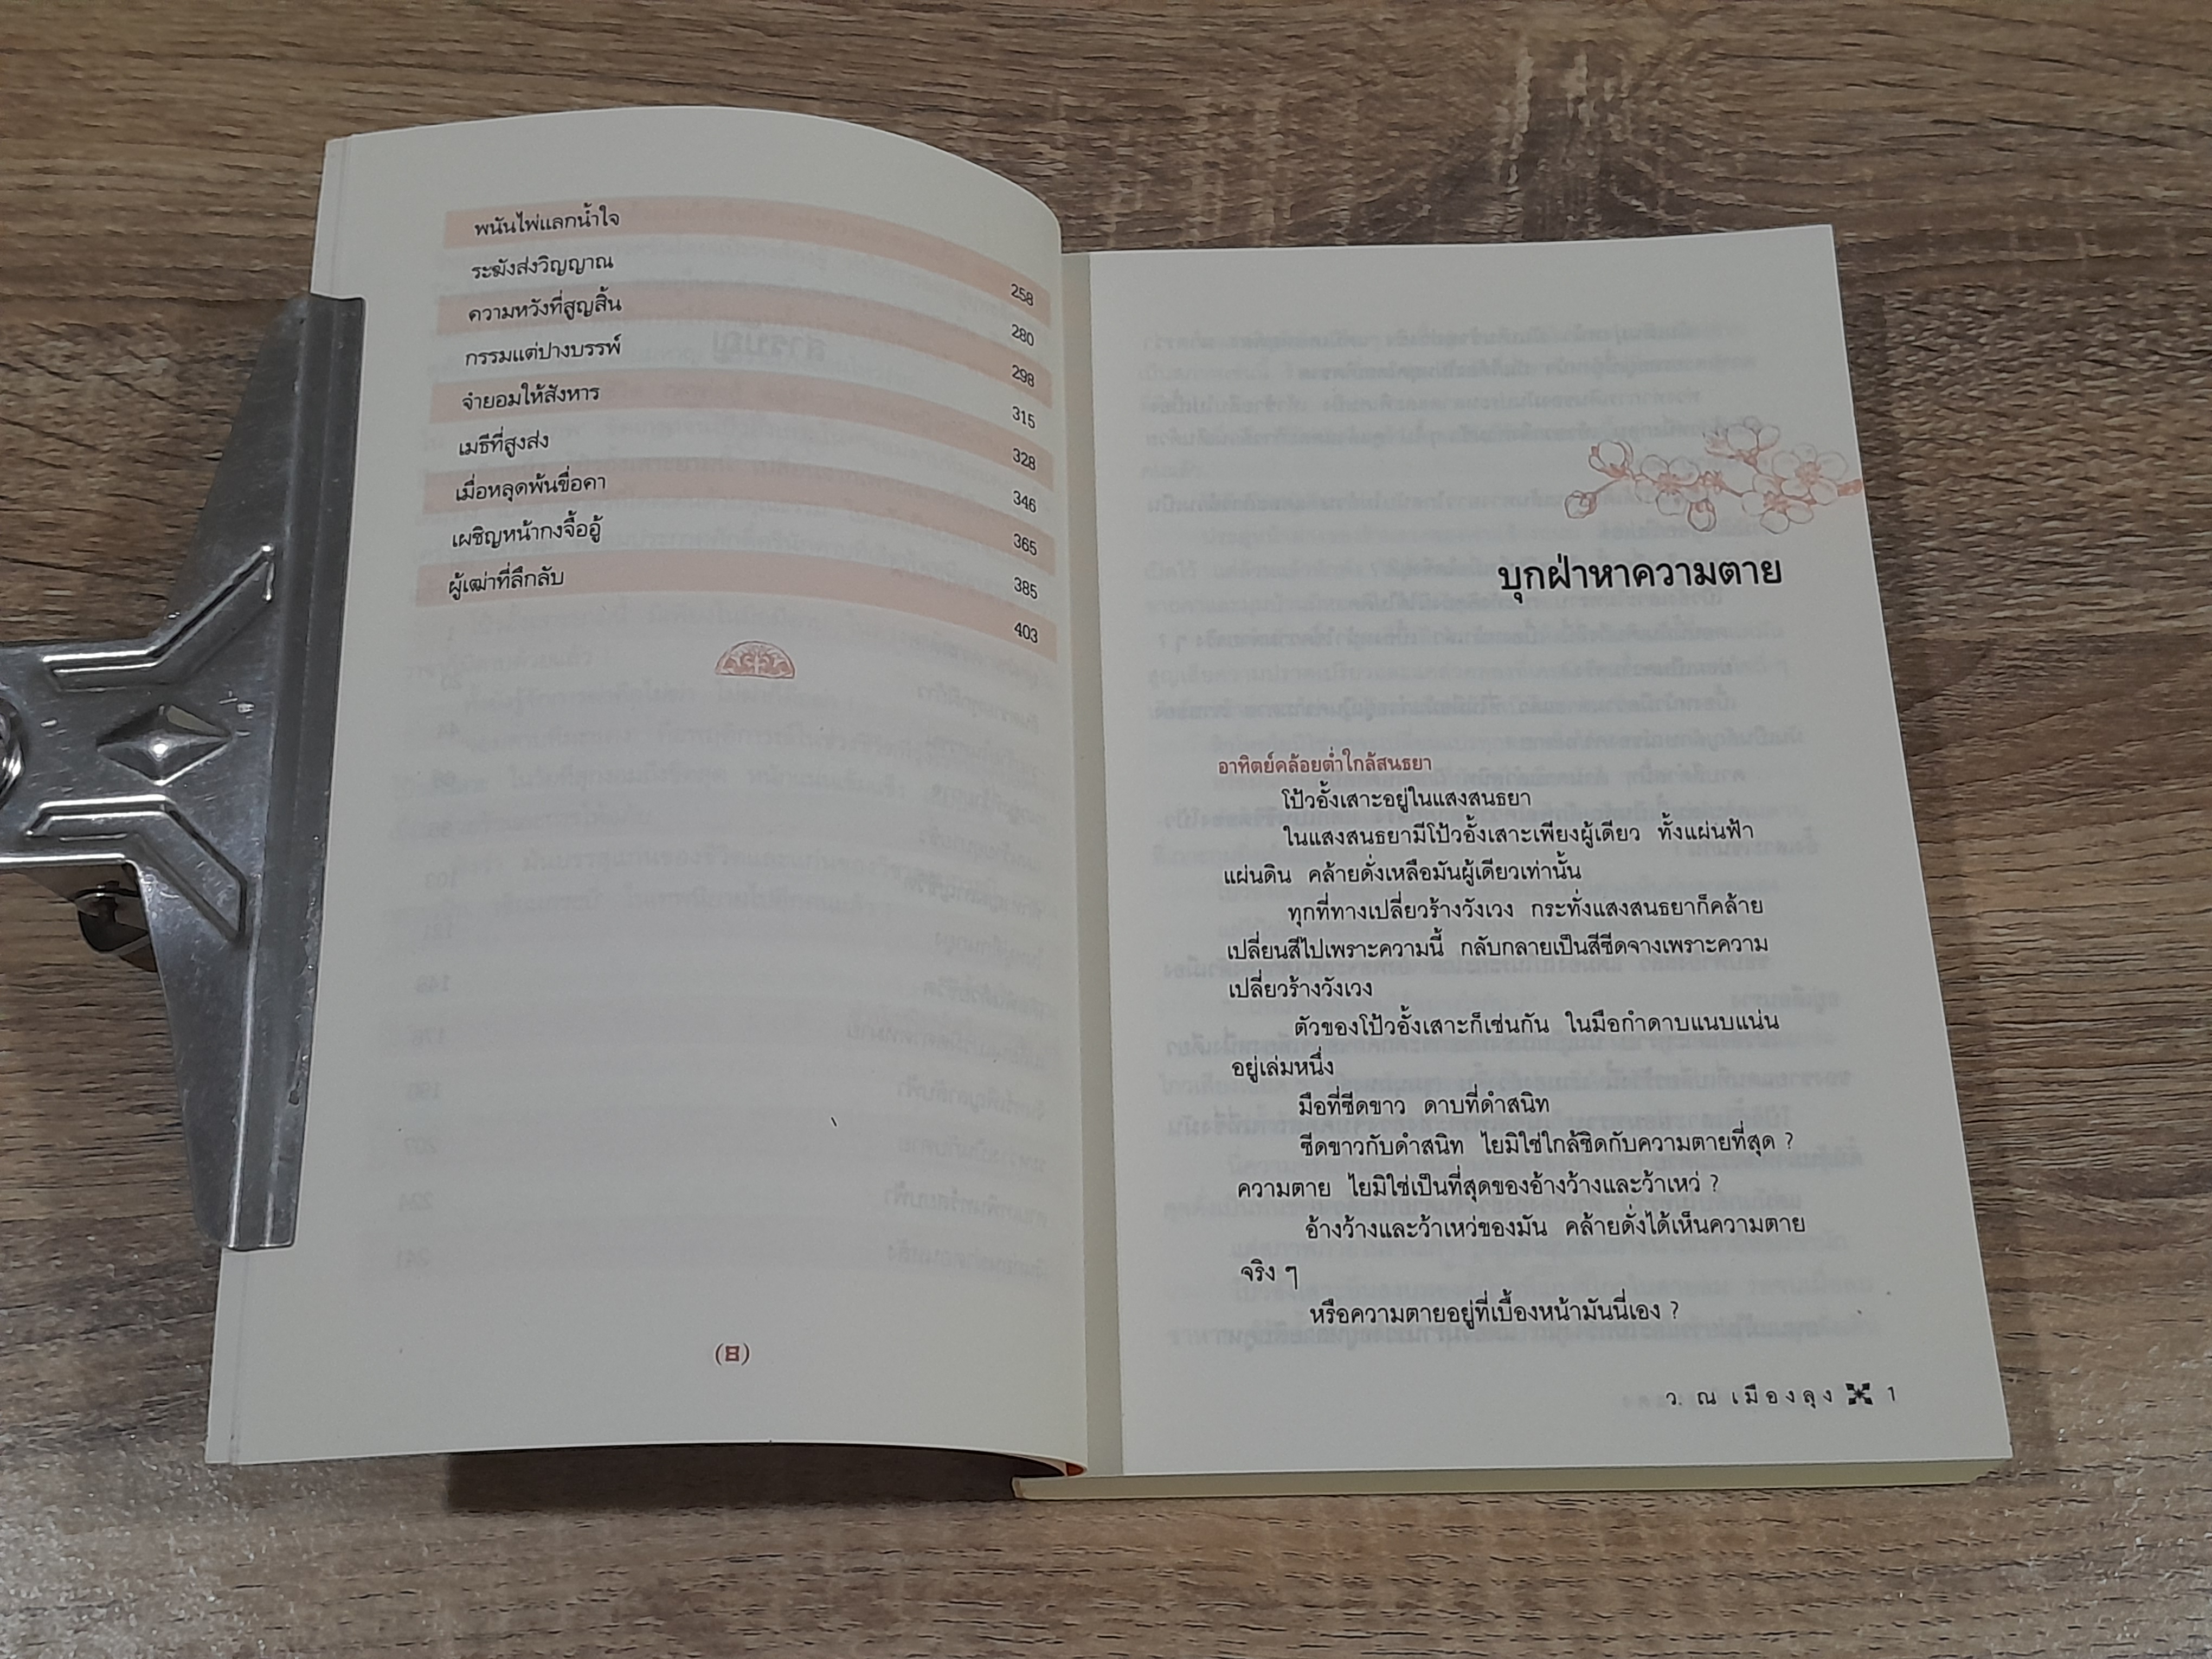 พนันไพ่แลกน้ำใจ 258
ระฆังส่งวิญญาณ 280
ความหวังที่สูญสิ้น 298
กรรมแต่ปางบรรพ์ 315
จำยอมให้สังหาร 328
เมธีที่สูงส่ง 346
เมื่อหลุดพ้นขื่อคา 365
เผชิญหน้ากงจื้ออู้ 385
ผู้เฒ่าที่ลึกลับ 403
(8)
บุกฝ่าหาความตาย
อาทิตย์คล้อยต่ำใกล้สนธยา
โป้วอั้งเสาะอยู่ในแสงสนธยา
ในแสงสนธยามีโป้วอั้งเสาะเพียงผู้เดียว ทั้งแผ่นฟ้า
แผ่นดิน คล้ายดั่งเหลือมันผู้เดียวเท่านั้น
ทุกที่ทางเปลี่ยวร้างวังเวง กระทั่งแสงสนธยาก็คล้าย
เปลี่ยนสีไปเพราะความนี้ กลับกลายเป็นสีซีดจางเพราะความ
เปลี่ยวร้างวังเวง
ตัวของโป้วอั้งเสาะก็เช่นกัน ในมือกำดาบแนบแน่น
อยู่เล่มหนึ่ง
มือที่ซีดขาว ดาบที่ดำสนิท
ซีดขาวกับดำสนิท ไยมิใช่ใกล้ชิดกับความตายที่สุด ?
ความตาย ไยมิใช่เป็นที่สุดของอ้างว้างและว้าเหว่ ?
อ้างว้างและว้าเหว่ของมัน คล้ายดั่งได้เห็นความตาย
จริง ๆ
หรือความตายอยู่ที่เบื้องหน้ามันนี่เอง ?
ว. ณ เมืองลุง 1